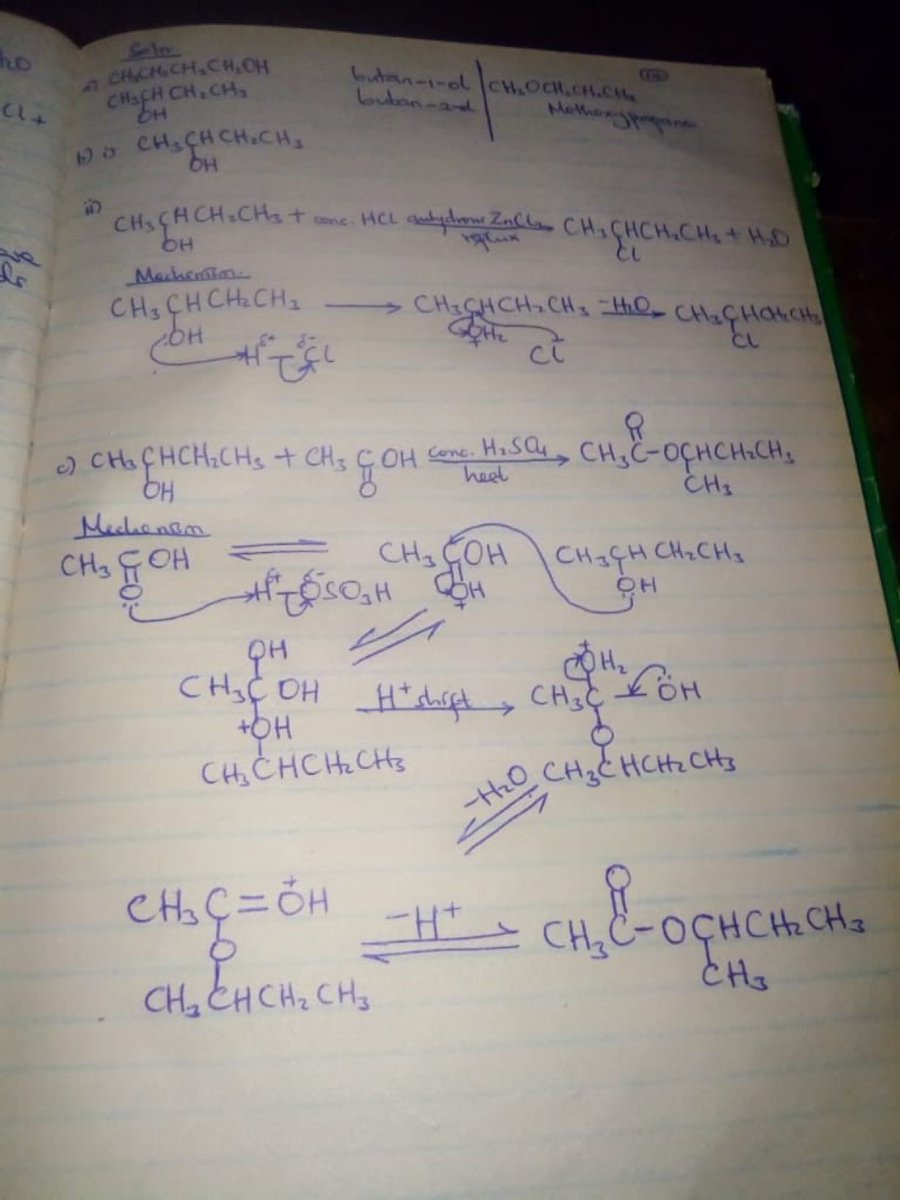 H2O
Cl +
Soln
a) CH3CH2CH2CH2OH butan-1-ol CH3OCH2CH2CH3
CH3CHCH2CH3 butan-2-ol Methoxypropane
OH
b) i) CH3CHCH2CH3
OH
ii) CH3CHCH2CH3 + conc. HCl anhydrous ZnCl2 reflux → CH3CHCH2CH3 + H2O
OH Cl
Mechanism
CH3CHCH2CH3 → CH3CHCH2CH3 -H2O → CH3CHCH2CH3
:OH H δ+ – Cl δ- OH2 + Cl- Cl
c) CH3CHCH2CH3 + CH3COH conc. H2SO4 heat → CH3C-OCHCH2CH3
OH O O CH3
Mechanism
CH3COH ⇌ CH3COH CH3CHCH2CH3
O H δ+ – OSO3H δ- OH + :OH
OH +OH2
CH3COH H+ shift → CH3C – ÖH
+OH O
CH3CHCH2CH3 CH3CHCH2CH3
-H2O
CH3C=OH + -H+ ⇌ CH3C-OCHCH2CH3
O O CH3
CH3CHCH2CH3